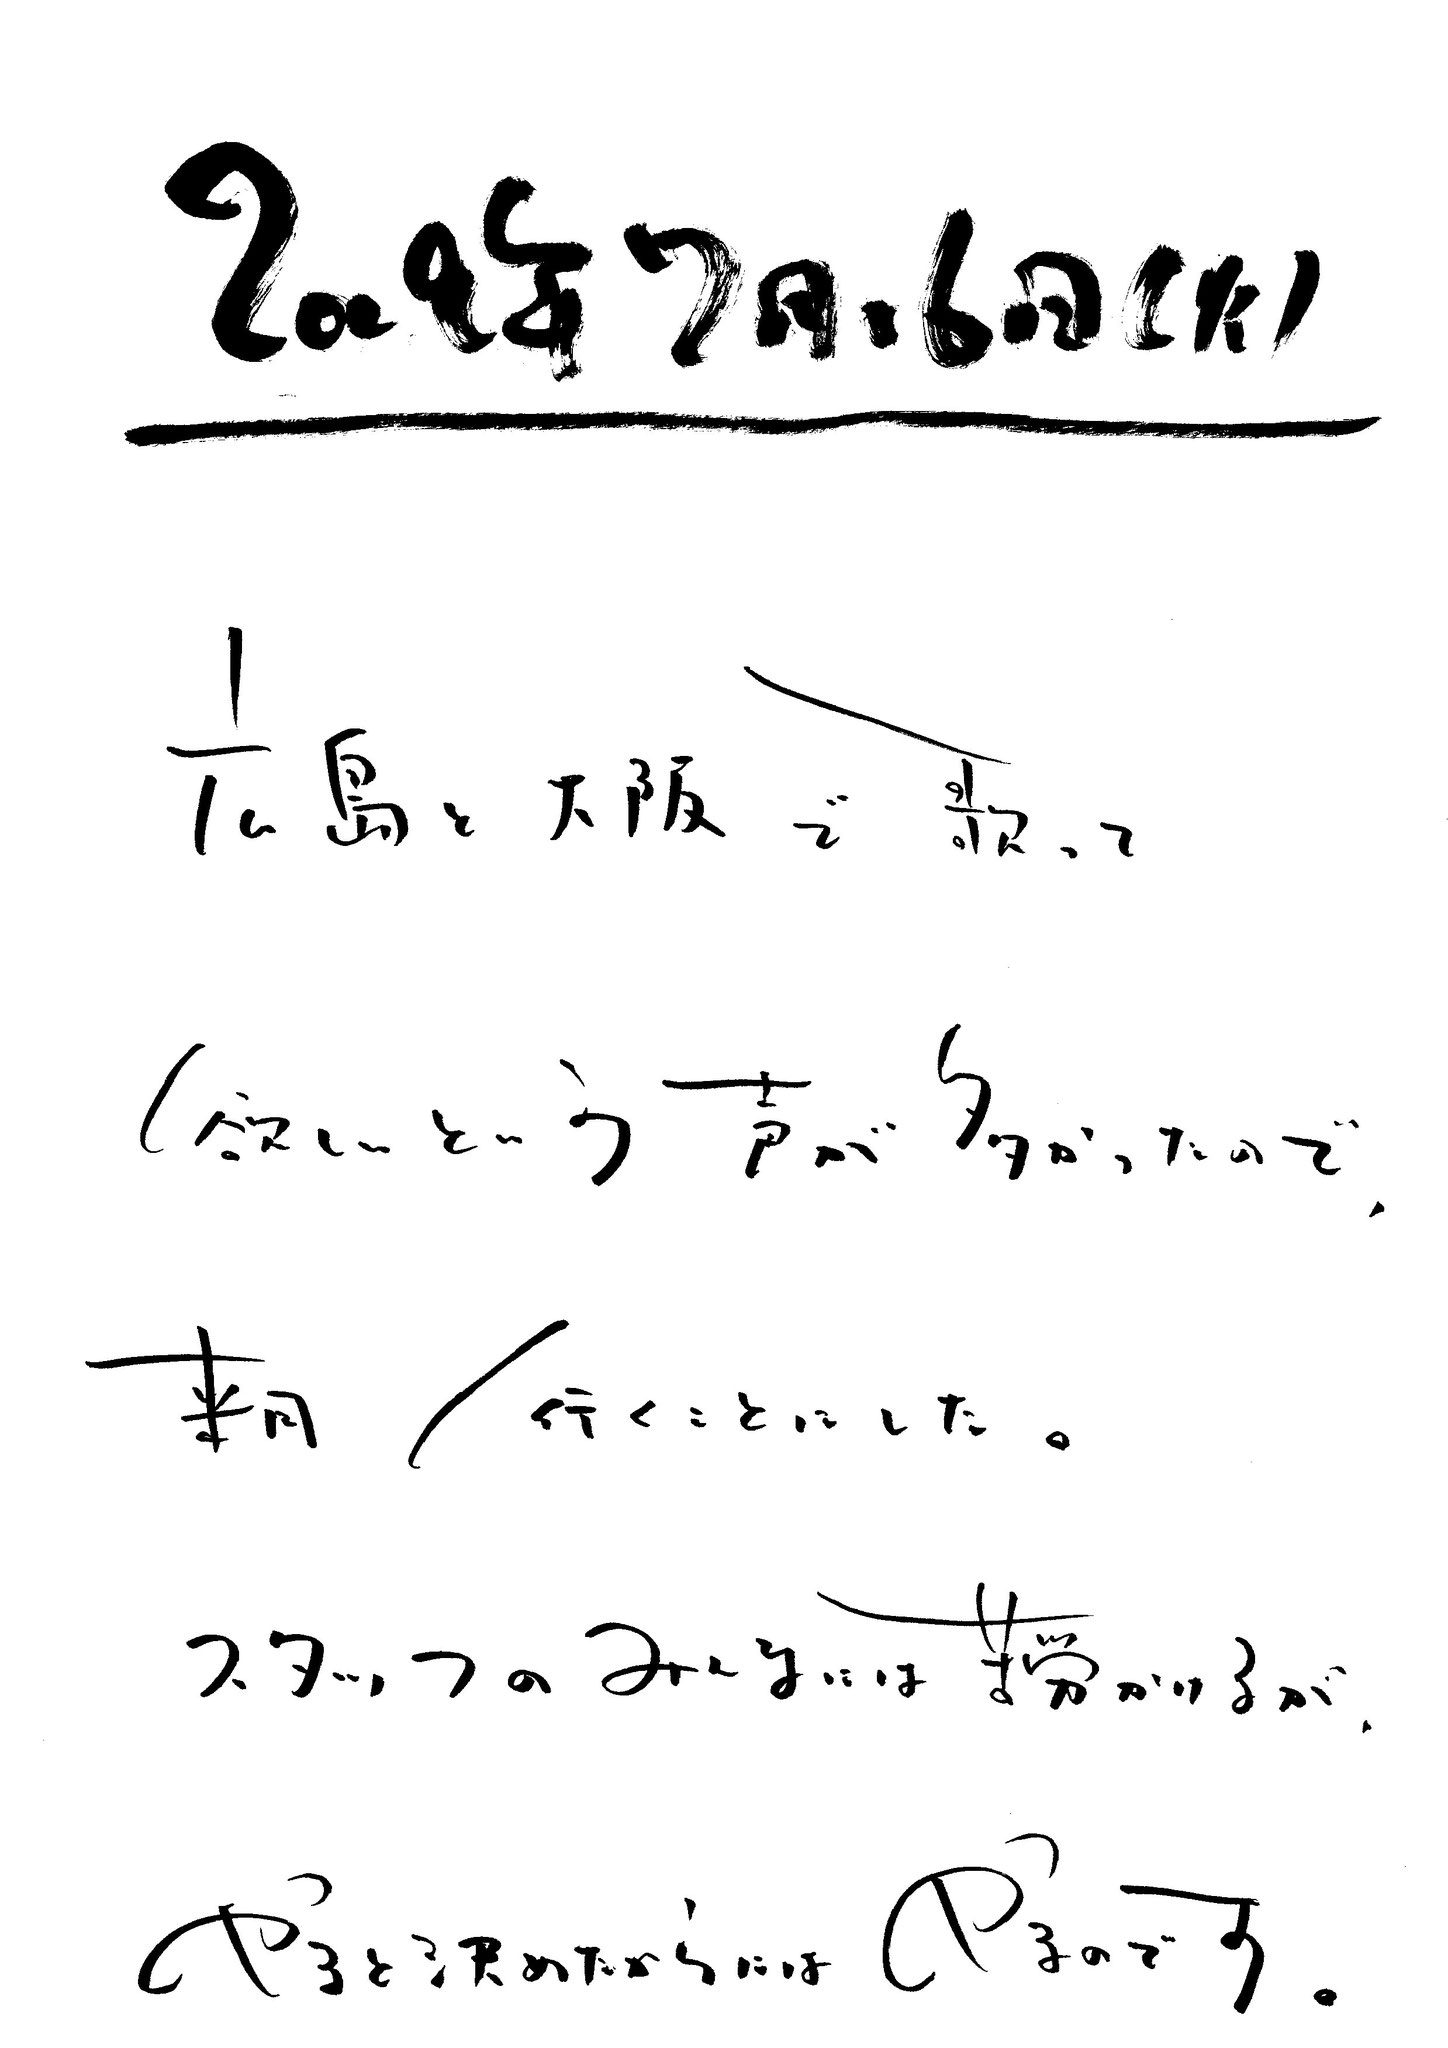 2009年7月.6日(火)
広島と大阪で歌って
欲しいという声が多かったので、
来月行くことにした。
スタッフのみんなには苦労かけるが、
やると決めたからにはやるのです。